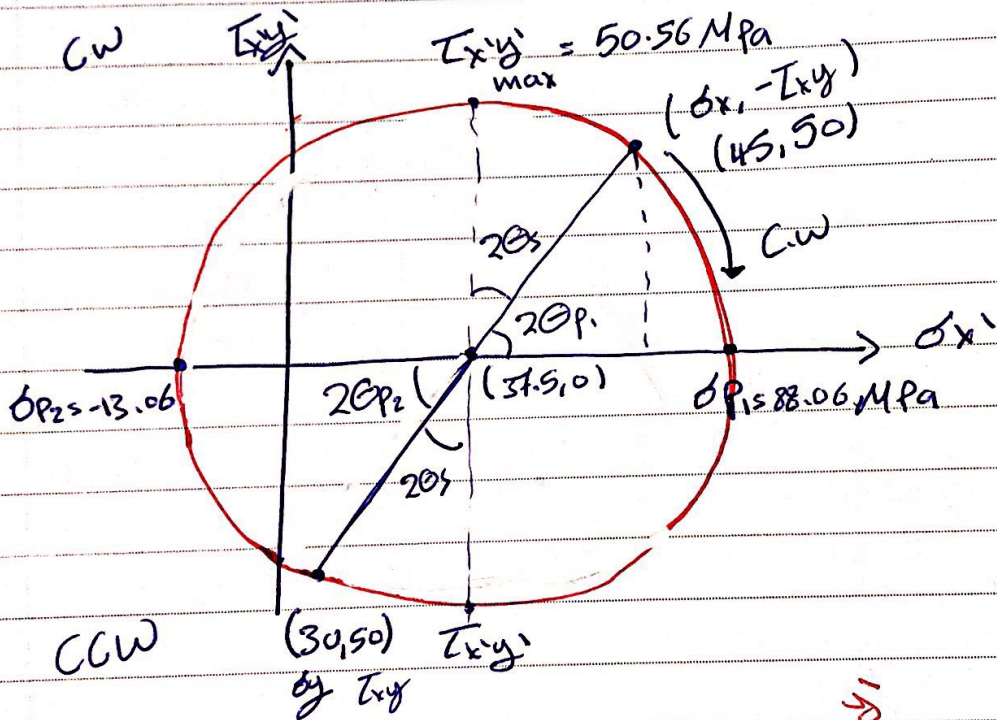 CW
τx'y'
τx'y' = 50.56 MPa
max
(σx, -τxy)
(45, 50)
C.W
2θs
2θp₁
σx'
(37.5, 0)
σp₂ = -13.06
2θp₂
σp₁ = 88.06 MPa
2θs
CCW
(30,50)
σy τxy
τx'y'